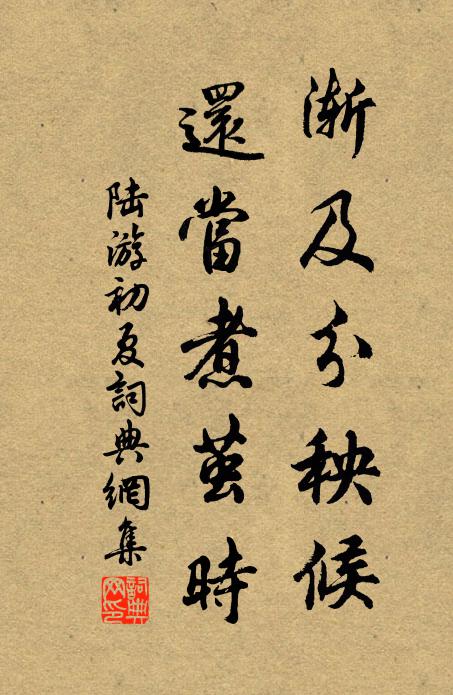 漸及分秧候
還當煮茧時
陆游初夏詞典網集
詞典网印